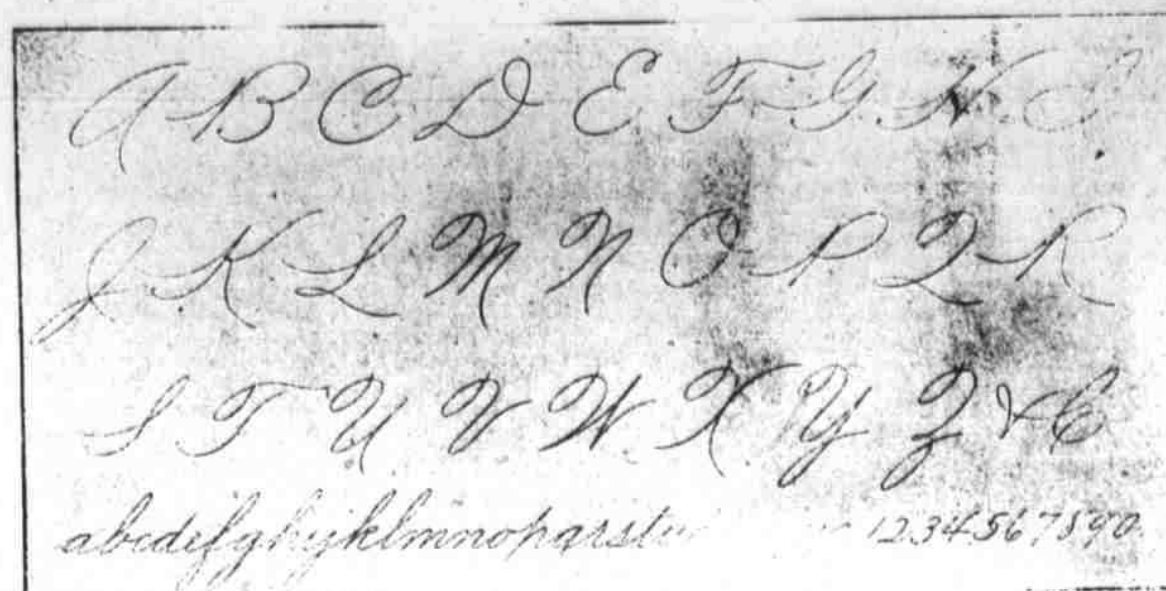 A B C D E F G H I
J K L M N O P Q R
S T U V W X Y Z &C
abcdefghijklmnopqrstu 1234567890